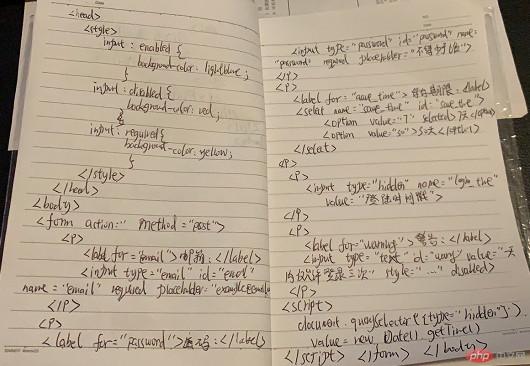 <head>
<style>
input : enabled {
background-color: lightblue;
}
input : disabled {
background-color: red;
}
input : required {
background-color: yellow;
}
</style>
</head>
<body>
<form action="" method="post">
<P>
<label for="email">邮箱:</label>
<input type="email" id="email"
name="email" required placeholder="example@email
</P>
<P>
<label for="password">密码:</label>
<input type="password" id="password" name=
"password" required placeholder="不得少于6位">
</P>
<P>
<label for="save_time">保存期限:</label>
<select name="save_time" id="save_time">
<option value="7" selected>7天</option>
<option value="30">30天</option>
</select>
<P>
<P>
<input type="hidden" name="login_time"
value="登陆时间戳">
</P>
<P>
<label for="warning">警告:</label>
<input type="text" id="warning" value="一天
内仅允许登录三次" style="..." disabled>
</P>
<script>
document.querySelector('[type="hidden"]').
value=new Date().getTime()
</script> </form> </body>
php